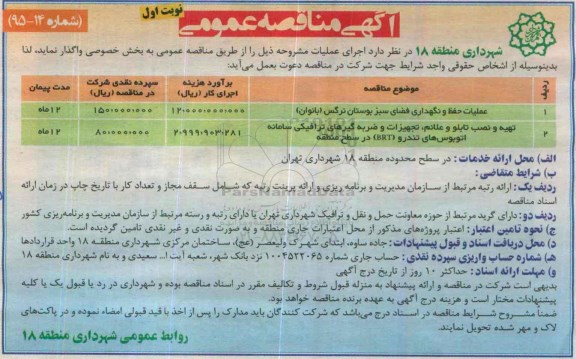 آگهی مناقصه عمومی
نوبت اول
(شماره ۱۴-۹۵)
شهرداری منطقه ۱۸ در نظر دارد اجرای عملیات مشروحه ذیل را از طریق مناقصه عمومی به بخش خصوصی واگذار نماید. لذا
بدینوسیله از اشخاص حقوقی واجد شرایط جهت شرکت در مناقصه دعوت بعمل می‌آید:
ردیف موضوع مناقصه برآورد هزینه اجرای کار (ریال) سپرده نقدی شرکت در مناقصه (ریال) مدت پیمان
۱ عملیات حفظ و نگهداری فضای سبز بوستان نرگس (بانوان) ۱۲/۰۰۰/۰۰۰/۰۰۰ ۱۵۰/۰۰۰/۰۰۰ ۱۲ماه
۲ تهیه و نصب تابلو و علائم، تجهیزات و ضربه گیرهای ترافیکی سامانه اتوبوس‌های تندرو (BRT) در سطح منطقه ۲/۹۹۹/۹۰۳/۲۸۱ ۸۰/۰۰۰/۰۰۰ ۱۲ماه
الف) محل ارائه خدمات: در سطح محدوده منطقه ۱۸ شهرداری تهران
ب) شرایط متقاضی:
ردیف یک: ارائه رتبه مرتبط از سازمان مدیریت و برنامه ریزی و ارائه پرینت رتبه که شامل سقف مجاز و تعداد کار با تاریخ چاپ در زمان ارائه
اسناد مناقصه
ردیف دو: دارای گرید مرتبط از حوزه معاونت حمل و نقل و ترافیک شهرداری تهران یا دارای رتبه و رسته مرتبط از سازمان مدیریت و برنامه‌ریزی کشور
ج) نحوه تامین اعتبار: اعتبار پروژه‌های مذکور از محل اعتبارات جاری منطقه و به صورت نقدی و غیر نقدی تامین گردیده است.
د) محل دریافت اسناد و قبول پیشنهادات: جاده ساوه، ابتدای شهرک ولیعصر (عج)، ساختمان مرکزی شهرداری منطقه ۱۸ واحد قراردادها
هـ) شماره حساب واریزی سپرده نقدی: حساب جاری شماره ۱۰۰۴۵۲۲۰۶۵ نزد بانک شهر، شعبه آیت ا... سعیدی و به نام شهرداری منطقه ۱۸
و) مهلت ارائه اسناد: حداکثر ۱۰ روز از تاریخ درج آگهی
بدیهی است شرکت در مناقصه و ارائه پیشنهاد به منزله قبول شروط و تکالیف مقرر در اسناد مناقصه بوده و شهرداری در رد یا قبول یک یا کلیه
پیشنهادات مختار است و هزینه درج آگهی به عهده برنده مناقصه خواهد بود.
ضمناً مشروح شرایط مناقصه در اسناد درج می‌باشد که شرکت کنندگان باید مدارک را پس از اخذ با قید قبولی امضاء نموده و در پاکت‌های
لاک و مهر شده تحویل نمایند.
روابط عمومی شهرداری منطقه ۱۸